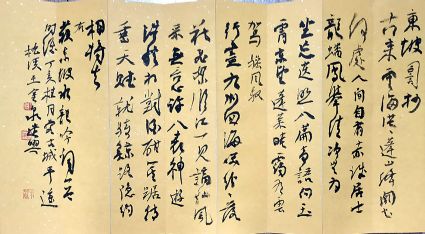 東坡詞抄
古来雲海茫茫道山絳闕知
何處人間自有赤城居士
龍蟠鳳舉清净無为
坐忘遗照八篇奇語向玉
霄東望蓬莱晻靄有雲
駕骖鳳馭
行盡九州四海笑紛紛落
花飛絮临江一見謫仙風
采無言心許八表神遊
浩然相對酒酣箕踞待
垂天赋就騎鯨路稳約
相將去
蘇東坡水龍吟詞一首
丁亥桂月於古城平遥